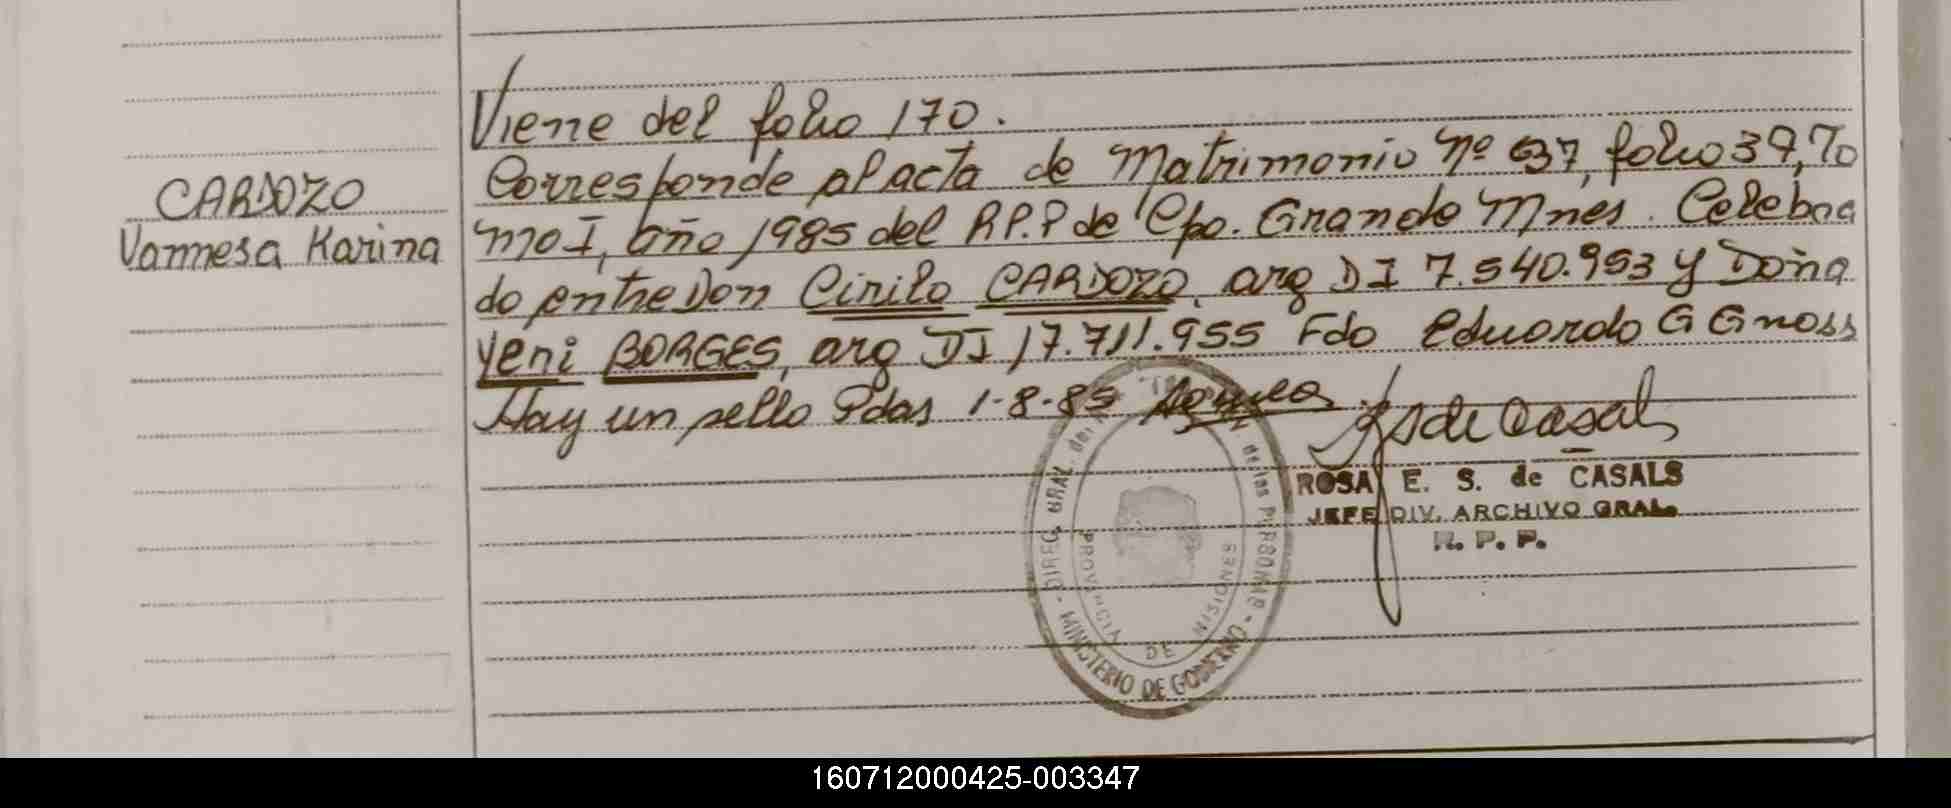 CARDOZO
Vannesa Karina
Viene del folio 170.
Corresponde al acta de Matrimonio Nº 637, folio 39, To
mo I, año 1985 del R.P.P de Cpo. Grande Mnes. Celebra
do entre Don Cirilo CARDOZO, arg DI 7.540.953 y Doña
Yeni BORGES, arg DI 17.711.955 Fdo Eduardo G Gross
Hay un sello Pdas 1-8-85
RS de Casals
ROSA E. S. de CASALS
JEFE DIV. ARCHIVO GRAL.
R. P. P.
DIREC. GRAL. del de las PERSONAS - MINISTERIO DE GOBIERNO -
PROVINCIA DE MISIONES
160712000425-003347